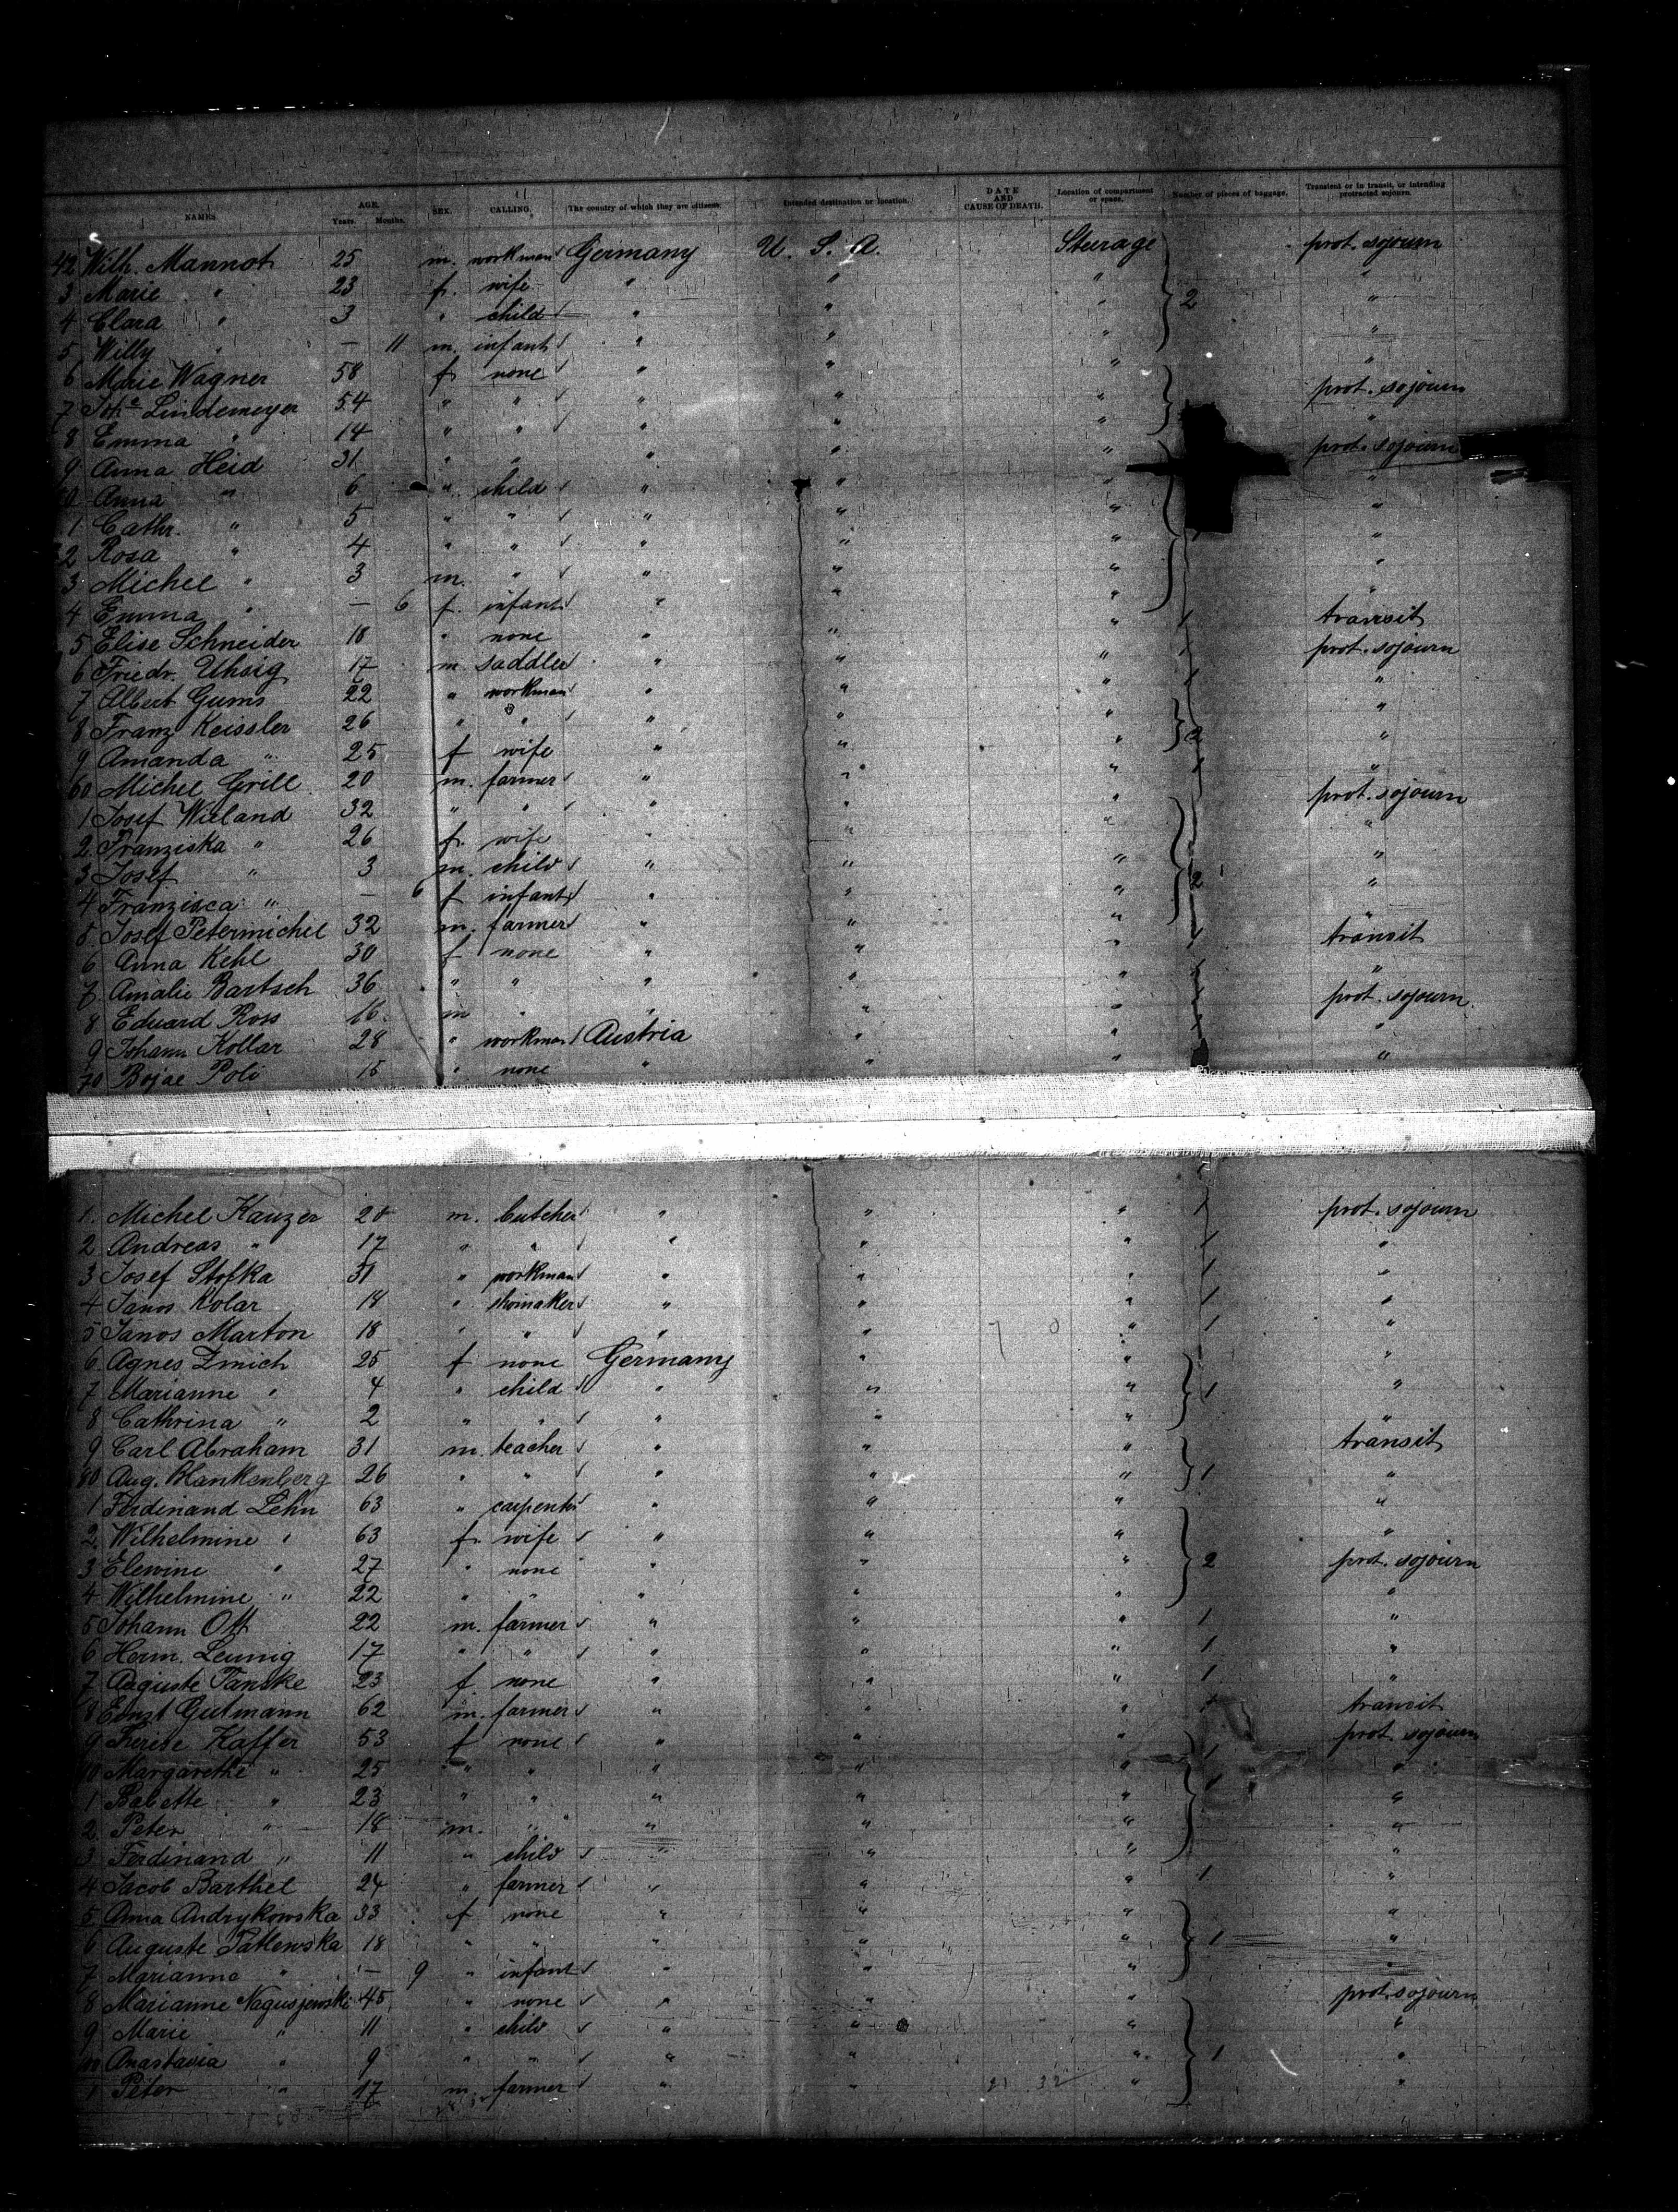 NAMES. AGE. Years. Months. SEX. CALLING. The country of which they are citizens. Intended destination or location. DATE AND CAUSE OF DEATH. Location of compartment or space. Number of pieces of baggage. Transient or in transit, or intending protracted sojourn.
42 Wilh. Mannot 25 m. workman Germany U. S. A. Steerage prot. sojourn
3 Marie " 23 f. wife " " " "
4 Clara " 3 " child " " " 2 "
5 Willy " — 11 m. infant " " " "
6 Marie Wagner 58 f. none " " " "
7 Joh.e Lindemeyer 54 " " " " " prot. sojourn
8 Emma " 14 " " " " " "
9 Anna Heid 31 " " " " " prot. sojourn
50 Anna " 6 " child " " " "
1 Cathr. " 5 " " " " " "
2 Rosa " 4 " " " " " "
3 Michel " 3 m. " " " " "
4 Emma " — 6 f. infant " " " "
5 Elise Schneider 18 " none " " " 1 transit
6 Friedr. Uhsig 17 m. saddler " " " 1 prot. sojourn
7 Albert Gums 22 " workman " " " 1 "
8 Franz Keissler 26 " " " " " "
9 Amanda " 25 f wife " " " 2 "
60 Michel Grill 20 m. farmer " " " 1 "
1 Josef Wieland 32 " " " " " prot. sojourn
2 Franziska " 26 f. wife " " "
3 Josef " 3 m. child " " " "
4 Franzisca " — 6 f infant " " " 2 "
5 Josef Petermichel 32 m. farmer " " " 1
6 Anna Kehl 30 f none " " " 1 transit
7 Amalie Bartsch 36 " " " " " 1 "
8 Eduard Ross 16 m " " " " 1 prot. sojourn
9 Johann Kollar 28 " workman Austria " " 1 "
70 Bojae Poli 15 " none " " " "
1. Michel Kauzer 20 m. butcher " " " 1 prot. sojourn
2 Andreas " 17 " " " " " 1 "
3 Josef Stofka 31 " workman " " " 1 "
4 Janos Kolar 18 " shoinaker " " " 1 "
5 Janos Marton 18 " " " " " 1 "
6 Agnes Zmich 25 f none Germany " " "
7 Marianne " 4 " child " " " 1 "
8 Cathrina " 2 " " " " " "
9 Carl Abraham 31 m. teacher " " " transit
80 Aug. Blankenberg 26 " " " " " 1 "
1 Ferdinand Lehn 63 " carpenter " " " "
2. Wilhelmine " 63 f. wife " " " "
3 Elewine " 27 " none " " " 2 prot. sojourn
4 Wilhelmine " 22 " " " " " "
5 Johann Ott 22 m. farmer " " " 1 "
6 Herm. Leunig 17 " " " " " 1 "
7 Auguste Tanske 23 f. none " " " 1 "
8 Ernst Gutmann 62 m. farmer " " " 1 transit
9 Therese Kaffer 53 f none " " " 1 prot. sojourn
90 Margarethe " 25 " " " " " "
1 Babette " 23 " " " " " "
2. Peter " 18 m. " " " " "
3 Ferdinand " 11 " child " " " "
4 Jacob Barthel 24 " farmer " " " 1 "
5 Anna Andrykowska 33 f none " " " "
6 Auguste Patlewska 18 " " " " " 1 "
7 Marianne " — 9 " infant " " " "
8 Marianne Nagusjewski 45 " none " " " prot. sojourn
9 Marie " 11 " child " " " "
100 Anastavia " 9 " " " " " 1 "
1 Peter " 17 m. farmer " " " "